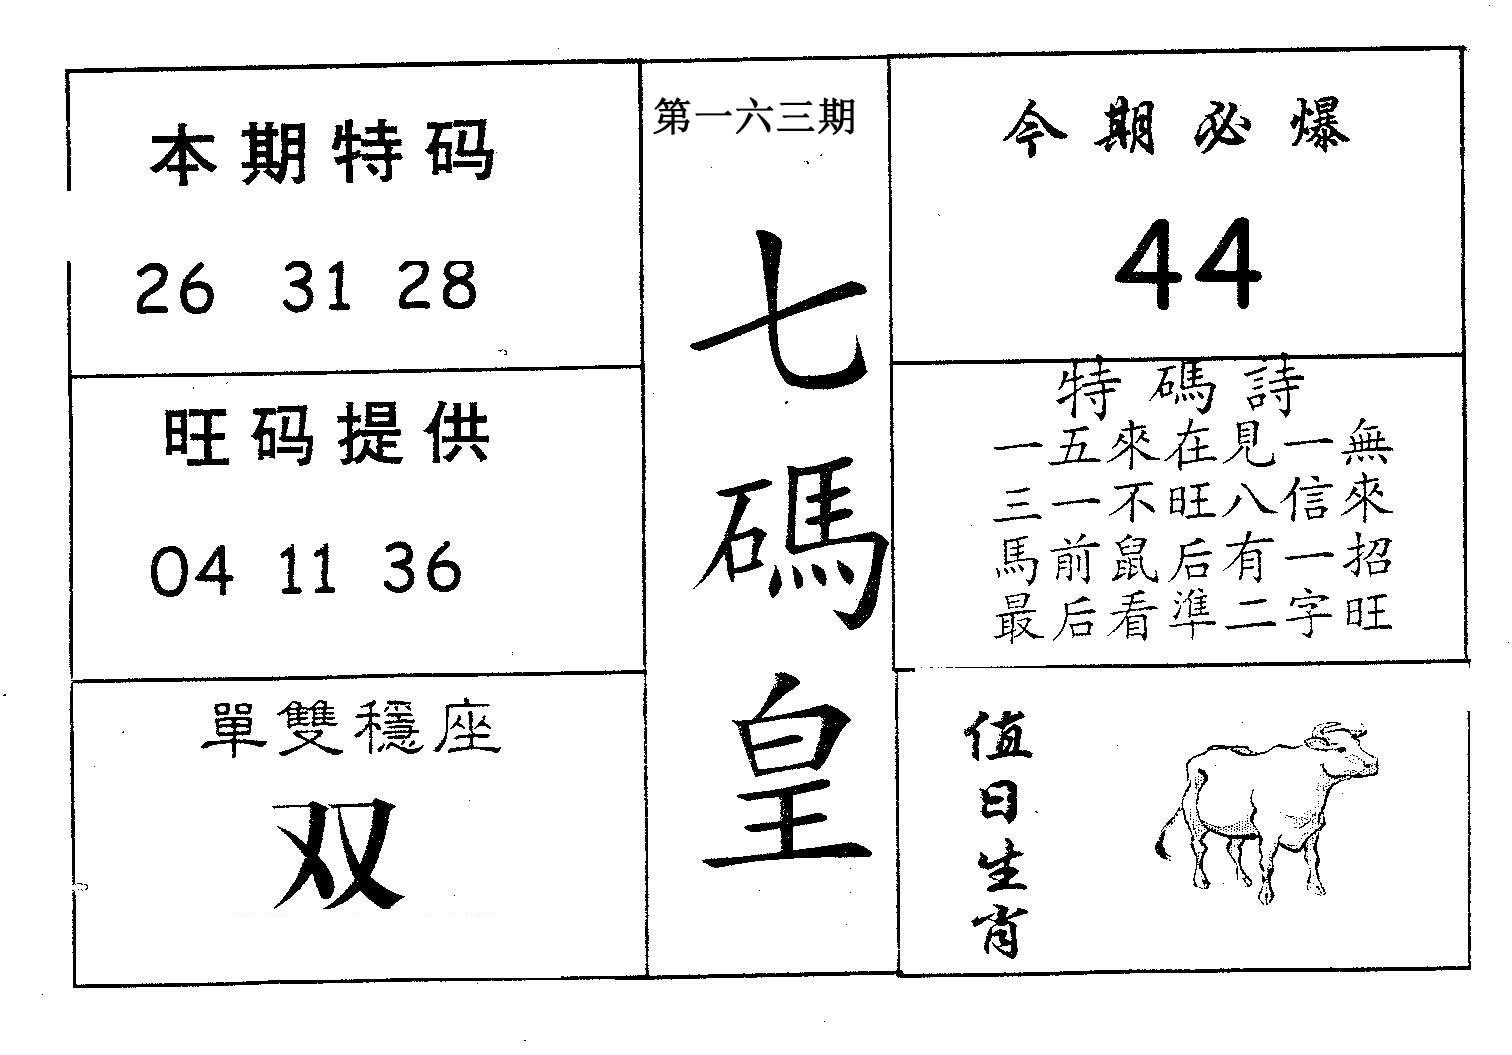 本期特码
26 31 28
旺码提供
04 11 36
單雙穩座
双
第一六三期
七碼皇
今期必爆
44
特碼詩
一五來在見一無
三一不旺八信來
馬前鼠后有一招
最后看準二字旺
值日生肖